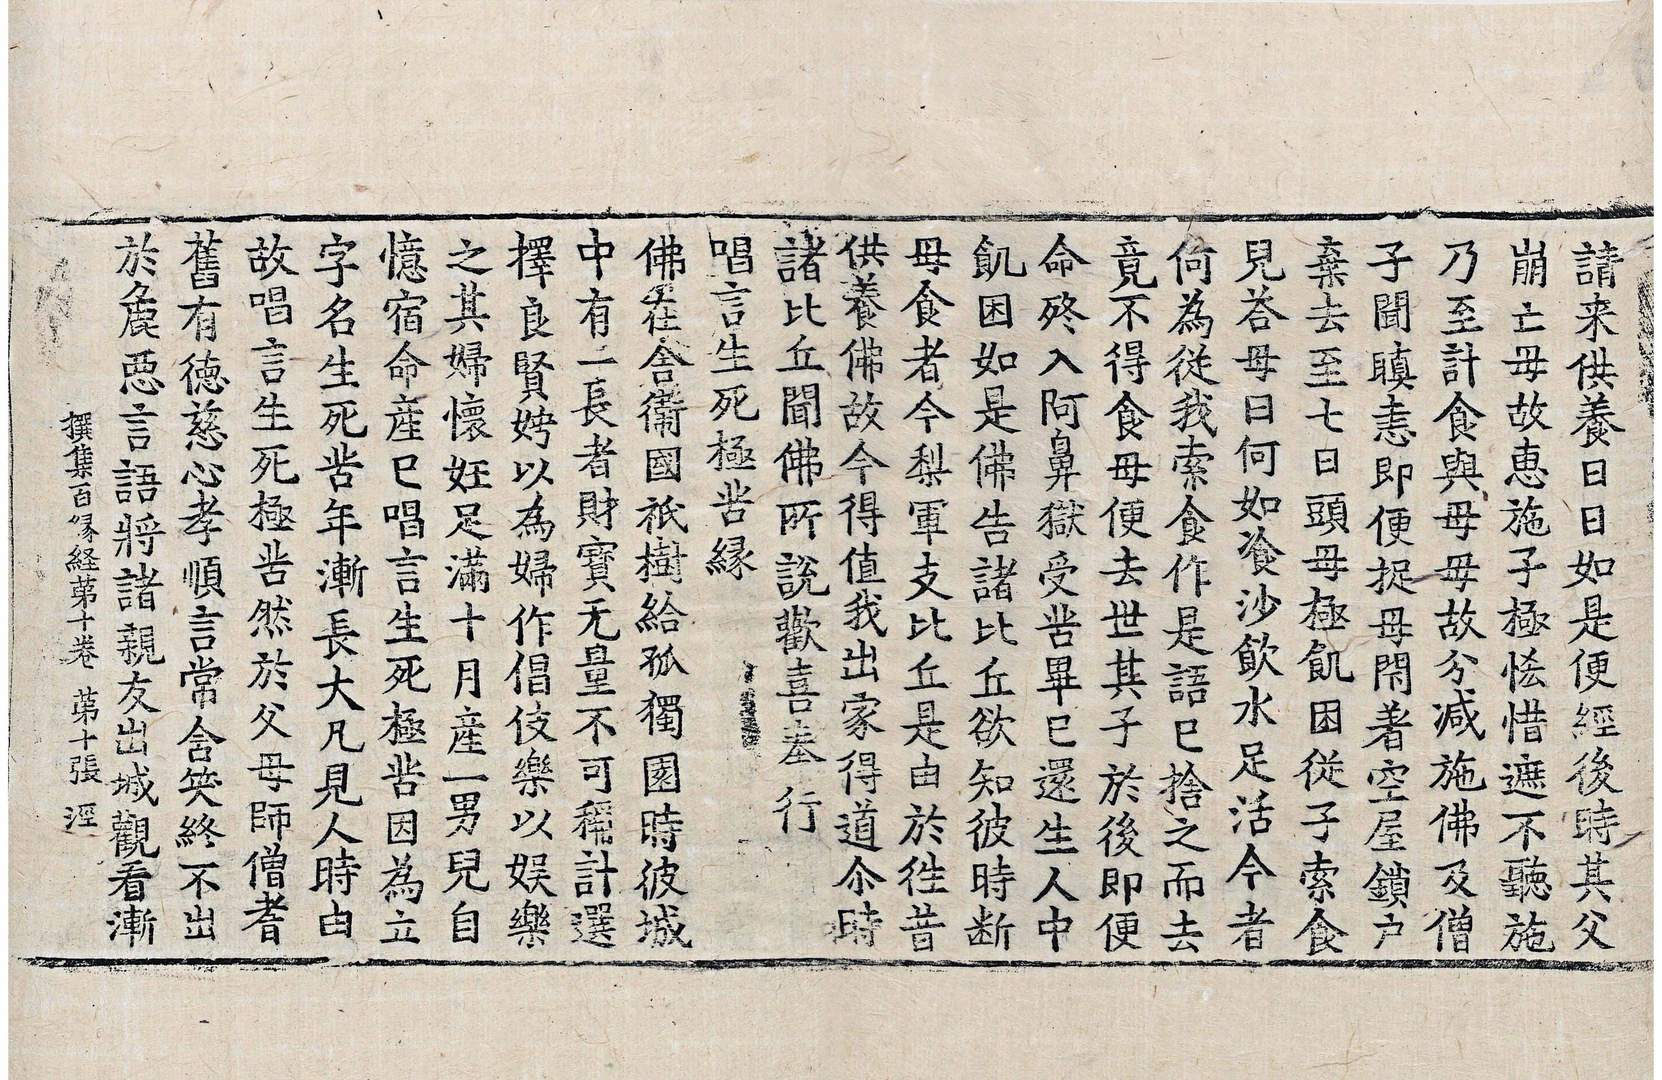 請来供養日日如是便經後時其父
崩亡母故惠施子極恡惜遮不聽施
乃至計食與母母故分减施佛及僧
子聞瞋恚即便捉母閇著空屋鎖户
棄去至七日頭母極飢困従子索食
兒荅母曰何如湌沙飲水足活今者
何為従我索食作是語已捨之而去
竟不得食母便去世其子於後即便
命終入阿鼻獄受苦畢已還生人中
飢困如是佛告諸比丘欲知彼時断
母食者今梨軍支比丘是由於徃昔
供養佛故今得值我出家得道尒時
諸比丘聞佛所說歡喜奉行
唱言生死極苦縁
佛在舎衞國祇樹給孤獨園時彼城
中有一長者財寳无量不可稱計選
擇良賢娉以為婦作倡伎樂以娱樂
之其婦懷妊足滿十月産一男兒自
憶宿命産已唱言生死極苦因為立
字名生死苦年漸長大凡見人時由
故唱言生死極苦然於父母師僧耆
舊有德慈心孝順言常含笑終不出
於麁恶言語將諸親友出城觀看漸
撰集百縁経苐十卷 苐十張 淫